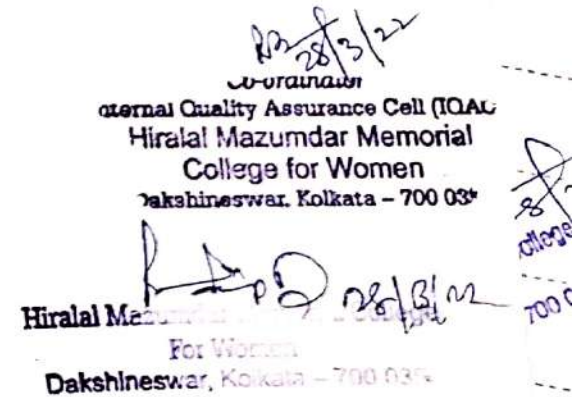 28/3/22
Co-ordinator
nternal Quality Assurance Cell (IQAC
Hiralal Mazumdar Memorial
College for Women
Dakshineswar, Kolkata – 700 035
28/3/22
Hiralal Mazumdar Memorial College
For Women
Dakshineswar, Kolkata – 700 035
ollege
700 0